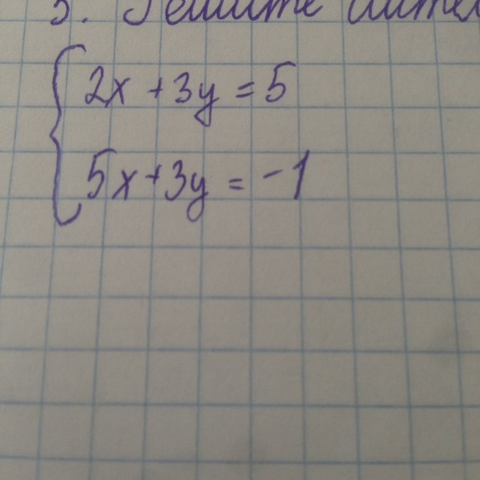 3. Решите
2x + 3y = 5
5x + 3y = -1